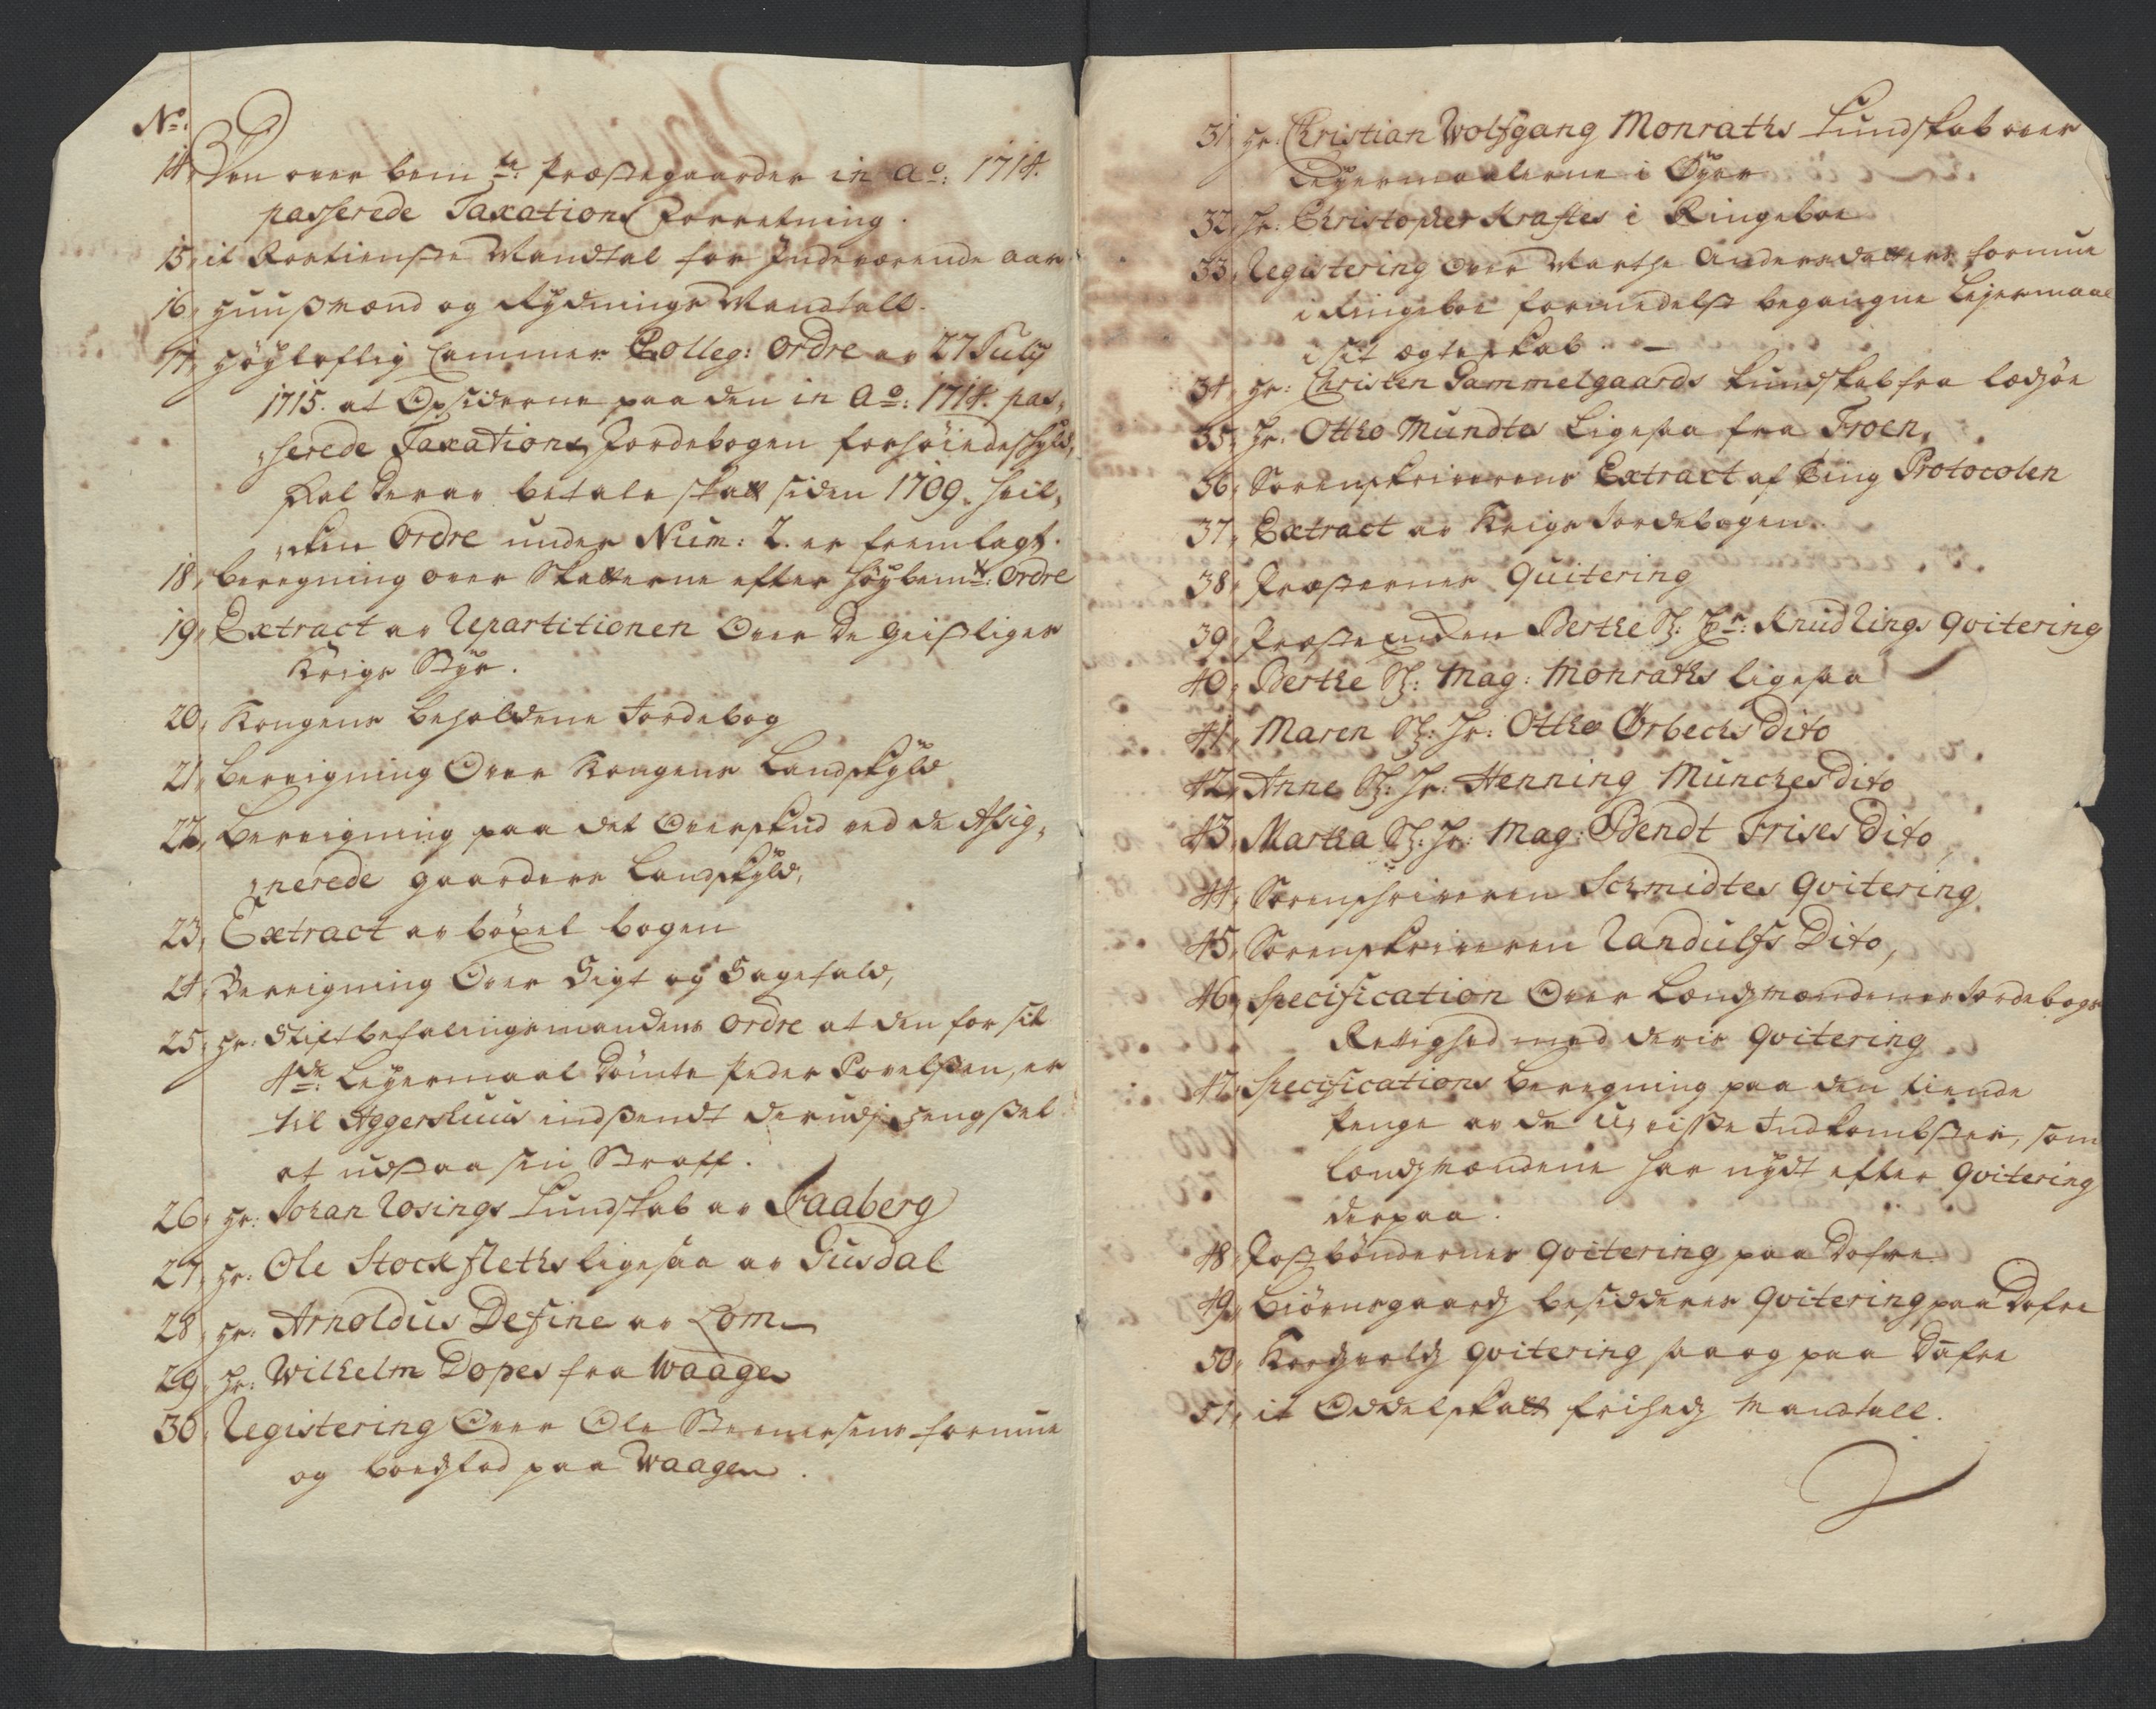 No:
14, Den over bem.te Præstegaarder in Ao: 1714.
passerede Taxations Forretning.
15, it Rostienste Mandtal for Inderværende aar
16, Huusmænd og Rydnings Mandtall.
17, Høyloflig Cammer Colleg: Ordre av 27 July
1715. at Opsiderne paa den in Ao: 1714. pas,
,serede Taxations Jordebogen forhøiede skyld,
skal derav betale skatt siden 1709. huil,
,cken Ordre under Num: 2. er fremlagt.
18, Beregning over Skatterne efter høybemte: Ordre
19, Extract av Repartitionen Over de Geistliges
Krigs Styr.
20, Kongens beholdene Jordebog
21, Bereigning Over Kongens Landskyld
22, Bereigning paa det Overskud ved de Assig,
,nerede gaarders Landskyld,
23, Extract av böxel bogen
24, Bereigning Over Sigt og Sagefald,
25, Hr: Stiftbefalingsmandens Ordre at den for sit
4de: Leyermaal Dömte Peder Povelsen, er
til Aggershuus indsendt derudj Fengsel
at udstaa sin Straff.
26, Hr: Johan Rosings Kundskab av Faaberg
27, Hr: Ole Stockfleths ligesaa av Gusdal
28, Hr: Arnoldus Define av Lom
29, Hr: Wilhelm Dopes fra Waage
30, Registering Over Ole Steenersens formue
og boedslod paa Waagen.
31, Hr: Christian Wolfgang Monraths Kundskab over
Leyermaalerne i Øyer
32, Hr: Christopher Kraftes i Ringeboe
33, Registering Over Marthe Andersdatters formue
i Ringeboe formedelst begangne Lejermaal
i sit ægteskab. —
34, Hr: Christen Gammelgaards kundskab fra Lædsöe
35, Hr: Otto Mundtes Ligesaa fra Froen,
36, Sorenskriverens Extract af Ting Protocolen
37, Extract av Krigs Jordebogen.
38, Præsternes Quitering
39, Præsteenken Berthe Sl: Hr: Knud Lings Qvitering
40, Berthe Sl: Mag: Monraths ligesaa
41, Maren Sl: Hr: Otthe Örbechs Dito
42, Anne Sl: Hr: Henning Munches Dito
43, Martha Sl: Hr: Mag: Bendt Frises Dito,
44, Sorenschriveren Schmidtes Qvitering
45, Sorenskriveren Randulfs Dito,
46, Specification Over Lændsmændenes Jordebogs
Rettighed med deris Qvitering
47, Specifications beregning paa den tiende
penge av de uvisse Indkombster, som
Lændsmændene har nydt efter Qvitering
derpaa.
48, Postbøndernes Qvitering paa Dofre
49, Biörnsgaards besidderes Qvitering paa Dofre
50, Qvitering saa og paa Dofre
51, it Oddelskatt friheds Mandtall.